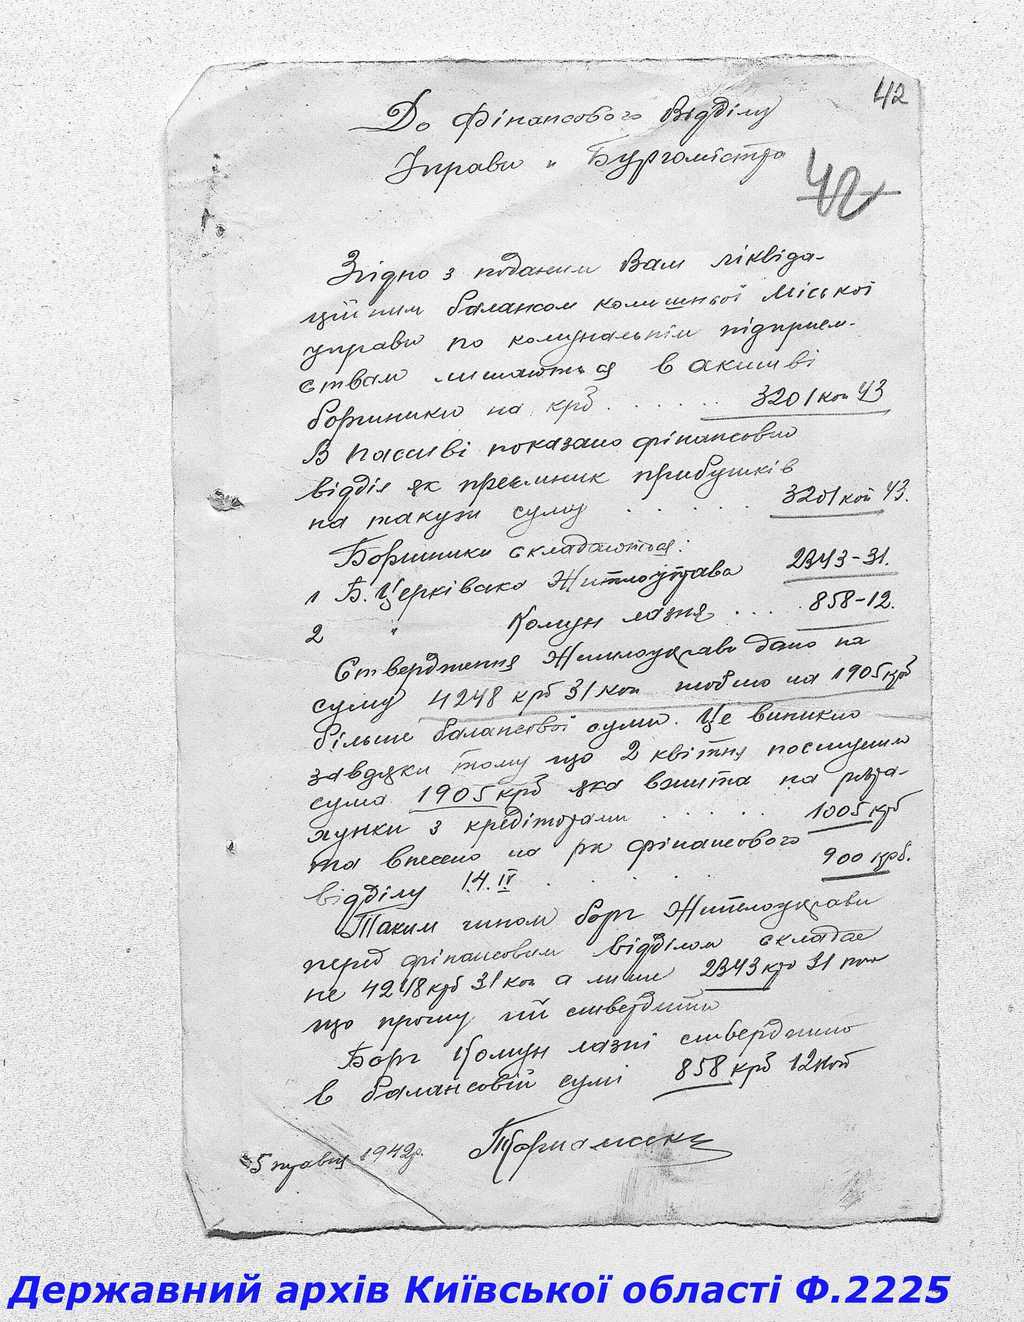 42
До Фінансового Відділу
Управи и Бургомістра
42
Згідно з поданим Вам ліквіда-
ційним балансом колишньої Міської
управи по комунальнім підприєм-
ствам лишаються в активі
боржники на крб. . . . . . . 3201 коп 43
В пассиві показано фінансовий
відділ як приємник прибутків
на такуж суму . . . . . . 3201 коп 43.
Боржники складаються:
1 Б. Церківська Житлоуправа 2343-31.
2 " Комун лазня . . . . 858-12.
Ствердження Житлоуправи дано на
суму 4248 крб 31 коп тобто на 1905 крб
більше балансової суми. Це виникло
завдяки тому що 2 квітня поступила
сума 1905 крб яка взята на розра-
хунки з кредіторами . . . . . . 1005 крб
та внесено на рк фінансового
відділу 14.IV . . . . 900 крб.
Таким чином борг Житлоуправи
перед фінансовим відділом складає
не 4248 крб 31 коп а лише 2343 крб 31 коп
що прошу їй ствердити
Борг Комун лазні стверджено
в балансовій сумі 858 крб 12 коп
5 травня 1942р.
Державний архів Київської області Ф.2225